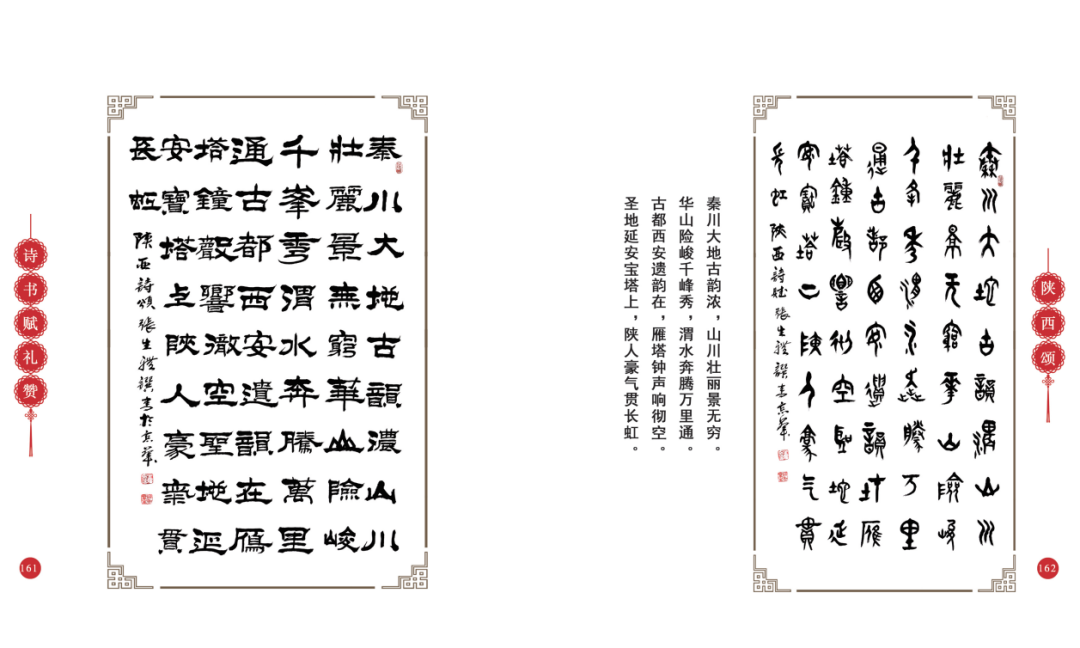 诗书赋礼赞
161
秦川大地古韻濃山川
壯麗景無窮華山險峻
千峯秀渭水奔騰萬里
通古都西安遺韻在鴈
塔鐘聲響徹空聖地延
安寶塔上陝人豪氣貫
長虹
陝西詩頌張生禮撰書於京華
陕西颂
162
秦川大地古韻濃山川
壯麗景无窮華山險峻
千峯秀渭水奔騰万里
通古都西安遺韻在雁
塔鐘聲響徹空聖地延
安寶塔上陝人豪气貫
長虹
陝西詩賦張生禮撰書京華
秦川大地古韵浓，山川壮丽景无穷。
华山险峻千峰秀，渭水奔腾万里通。
古都西安遗韵在，雁塔钟声响彻空。
圣地延安宝塔上，陕人豪气贯长虹。